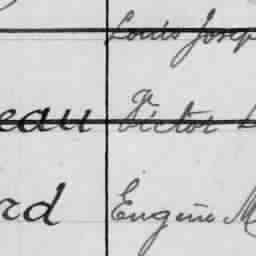 Louis Josep
eau Victor
rd Eugène M